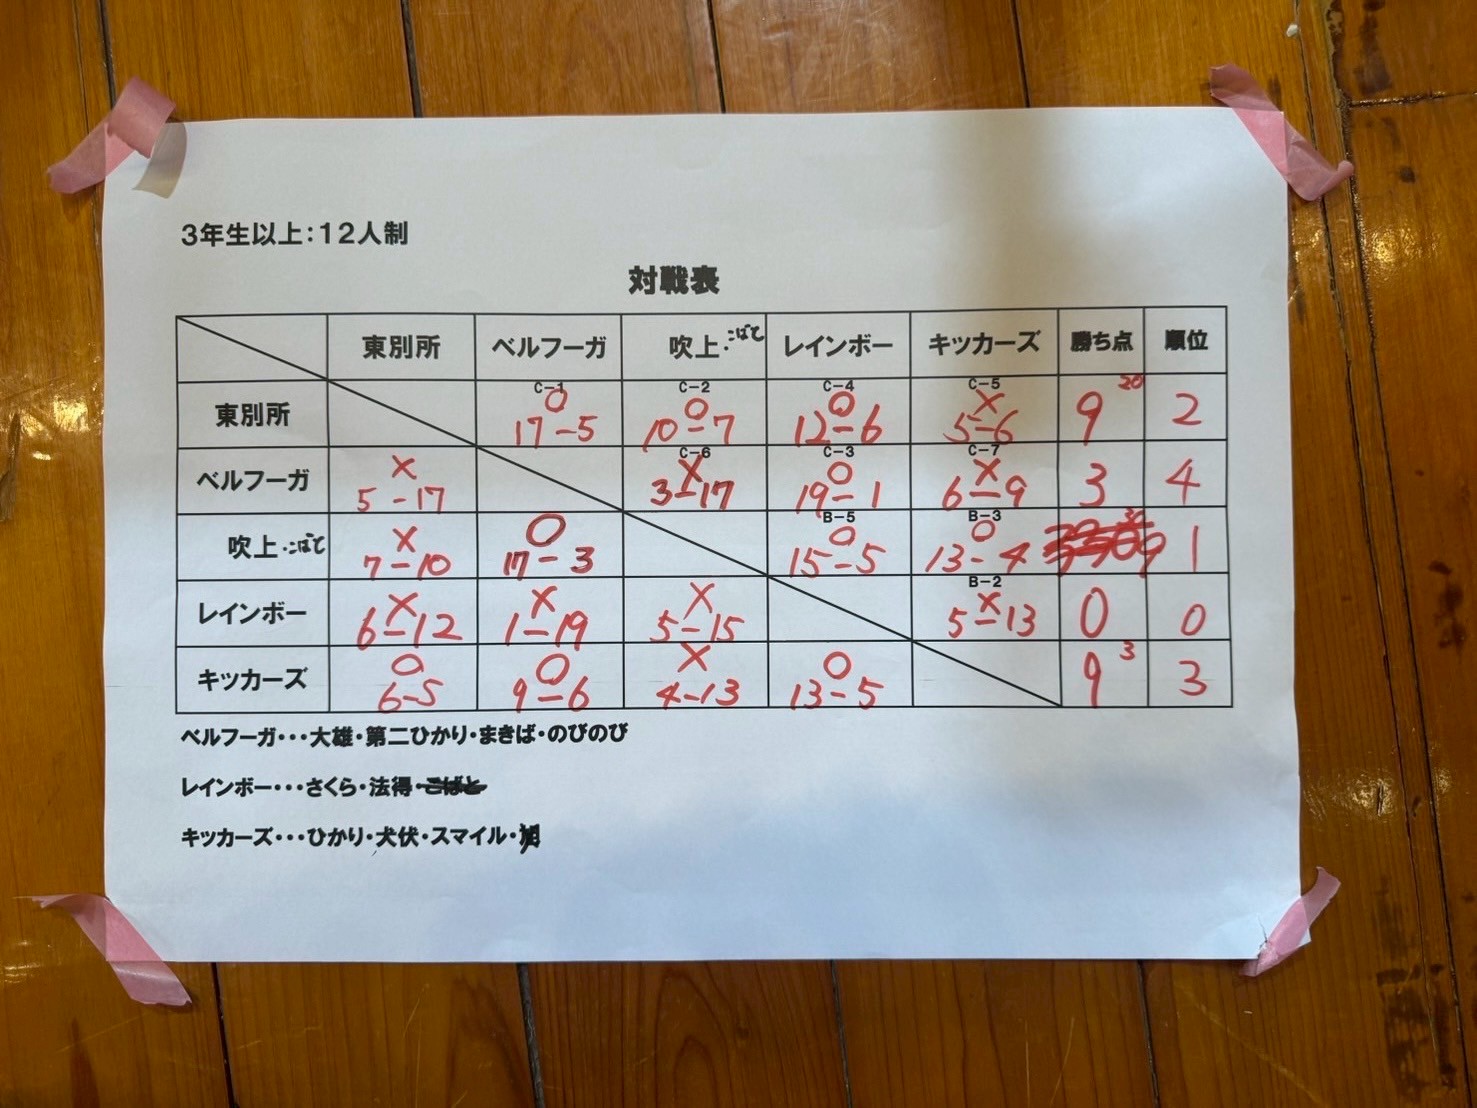 3年生以上：12人制
対戦表
東別所 ベルフーガ 吹上・こばと レインボー キッカーズ 勝ち点 順位
東別所 C-1 ○ 17-5 C-2 ○ 10-7 C-4 ○ 12-6 C-5 × 5-6 9 20 2
ベルフーガ × 5-17 C-6 × 3-17 C-3 ○ 19-1 C-7 × 6-9 3 4
吹上・こばと × 7-10 ○ 17-3 B-5 ○ 15-5 B-3 ○ 13-4 9 1
レインボー × 6-12 × 1-19 × 5-15 B-2 × 5-13 0 0
キッカーズ ○ 6-5 ○ 9-6 × 4-13 ○ 13-5 9 3 3
ベルフーガ・・・大雄・第二ひかり・まきば・のびのび
レインボー・・・さくら・法得・こばと
キッカーズ・・・ひかり・犬伏・スマイル・旭